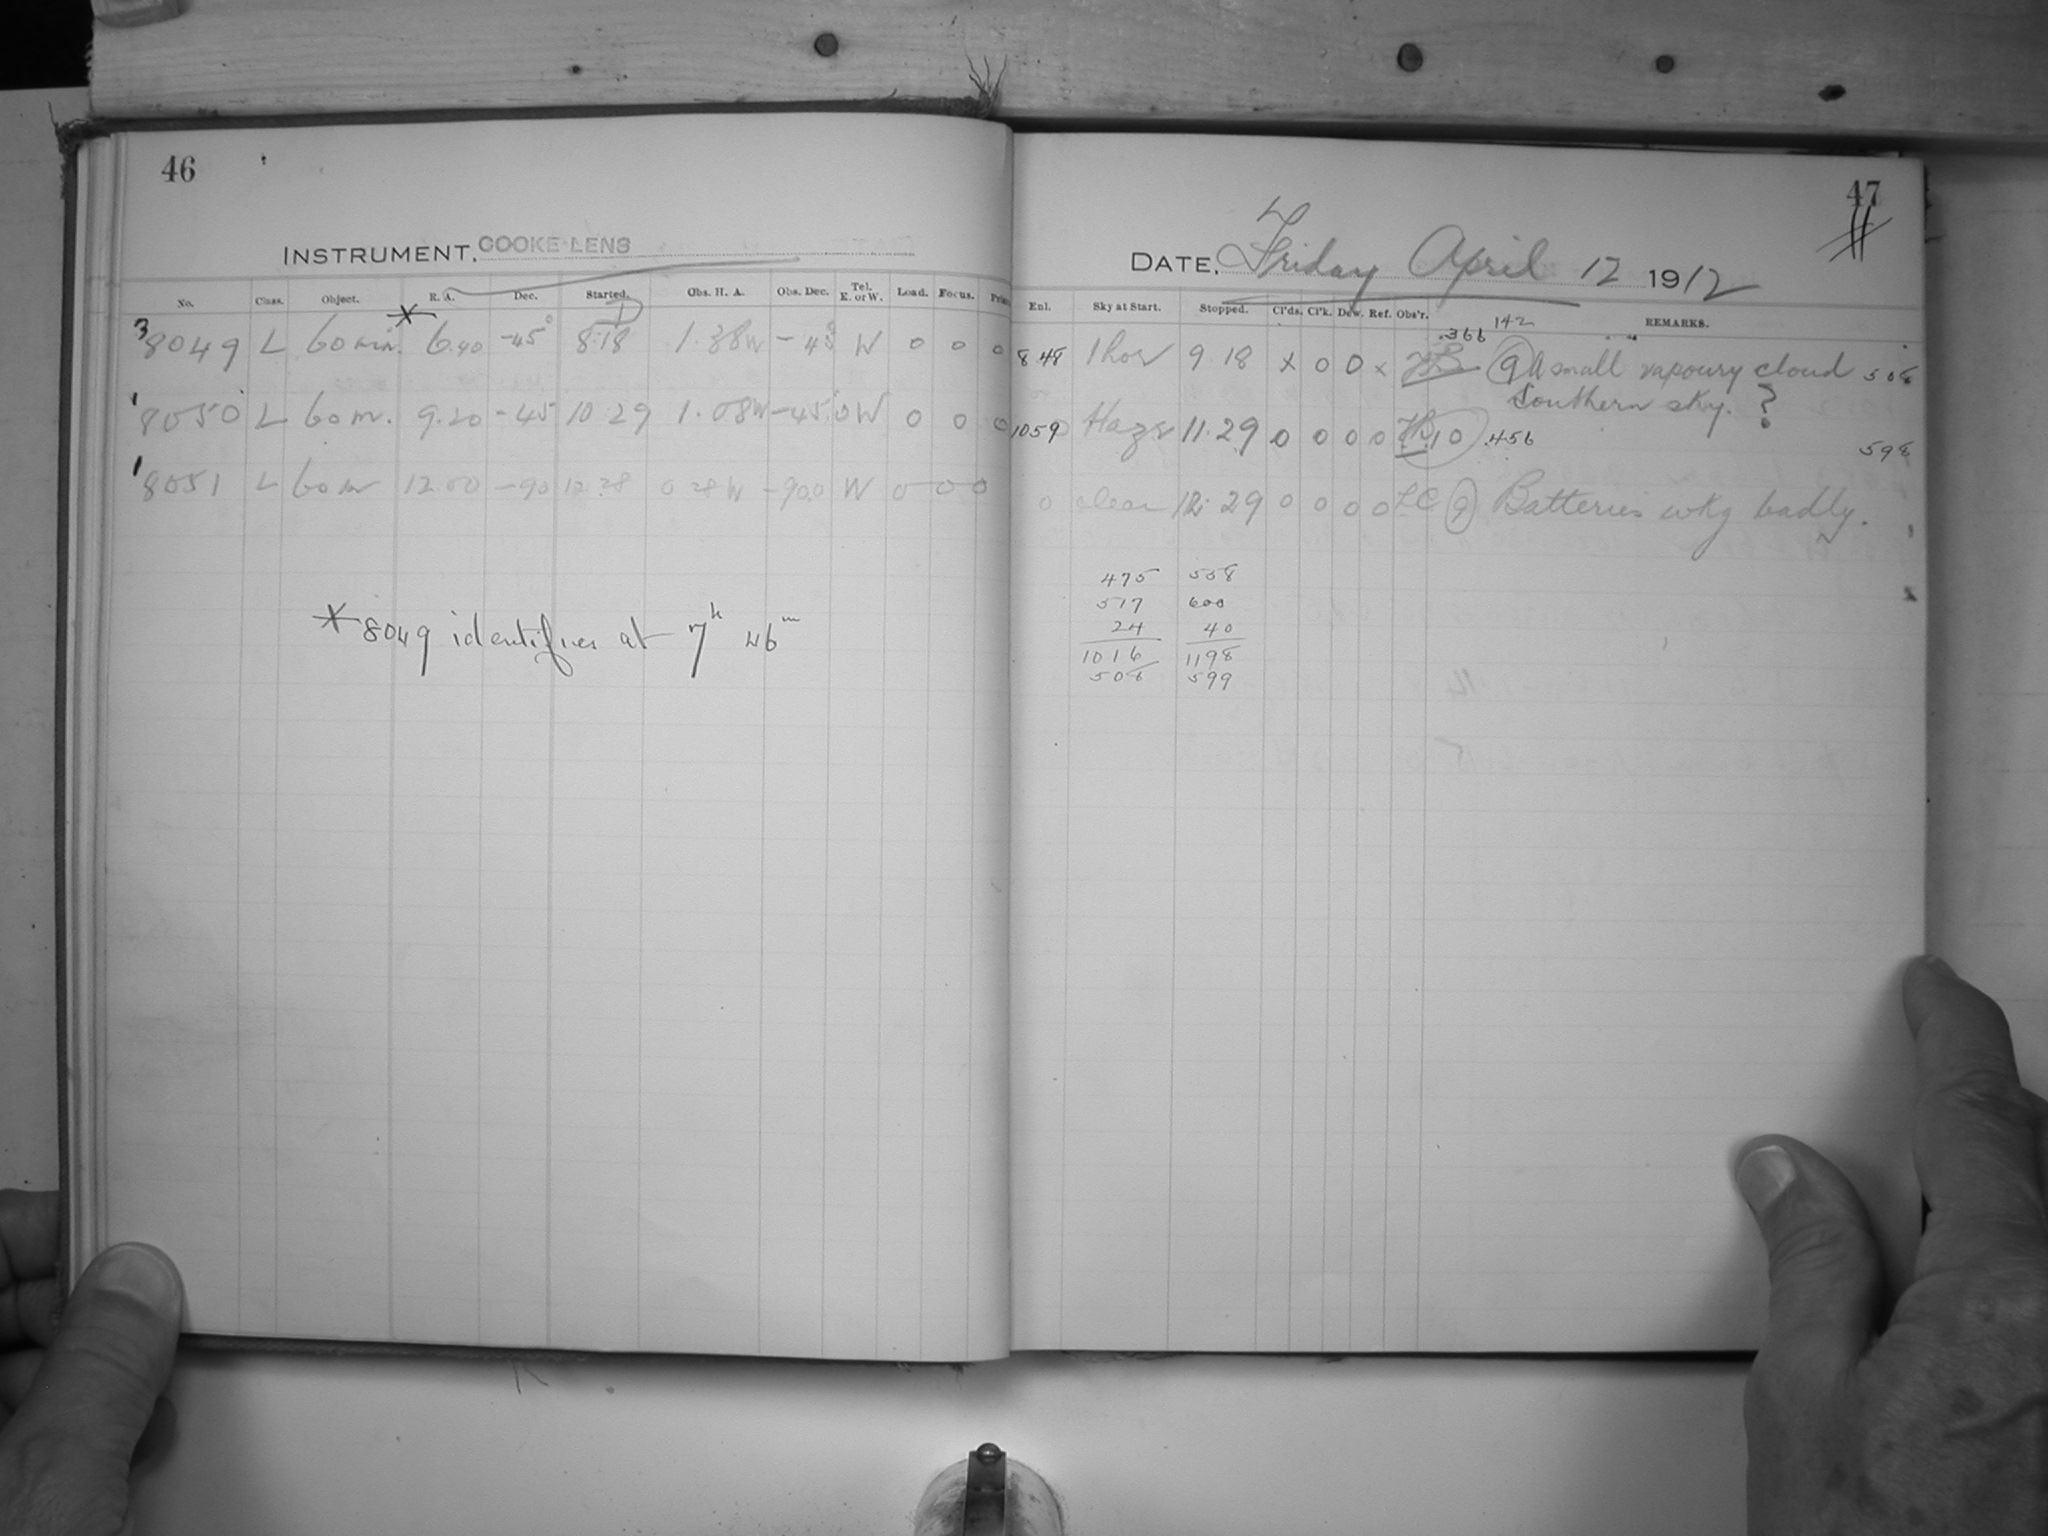 46
INSTRUMENT, COOKE LENS
No. Class. Object. R. A. Dec. Started. Obs. H. A. Obs. Dec. Tel. E. or W. Load. Focus.
3 8049 L 60 min. * 6.40 -45° 8.18 1.38W W 0 0 0
1 8050 L 60 m. 9.20 -45 10.29 1.08W -45.0 W 0 0 0
1 8051 L 60 m 12.00 -90 12.28 0 28W -90.0 W 0 0 0
* 8049 identifies at 7h 46m
47
DATE, Friday April 12 1912
Enl. Sky at Start. Stopped. Cl'ds. Cl'k. Dew. Ref. Obs'r. REMARKS.
.366 142
8 48 9.18 x 0 0 x 9 A small vapoury cloud 508
Southern sky. ?
1059 Haze 11.29 0 0 0 0 10 .456 598
0 clear 12.29 0 0 0 0 LC 9 Batteries wkg badly.
475 558
517 600
24 40
1016 1198
508 599